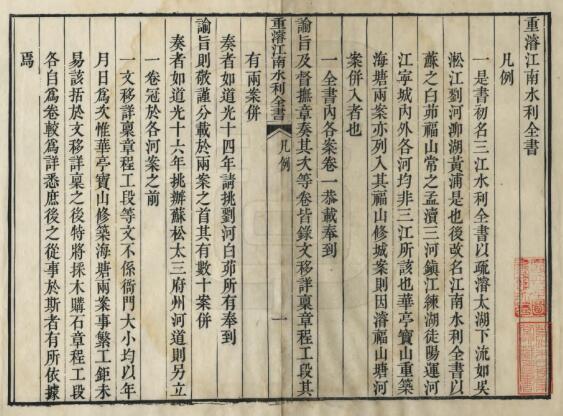 重濬江南水利全書
凡例
一是書初名三江水利全書以疏濬太湖下流如吳
淞江劉河泖湖黃浦是也後改名江南水利全書以
蘇之白茆福山常之孟瀆三河鎮江練湖徒陽運河
江寧城內外各河均非三江所該也華亭寶山重築
海塘兩案亦列入其福山修城案則因濬福山塘河
案併入者也
一全書內各案卷一恭載奉到
諭旨及督撫章奏其次等卷皆錄文移詳稟章程工段其
重濬江南水利全書
凡例
一
有兩案併
奏者如道光十四年請挑劉河白茆所有奉到
諭旨則敬謹分載於兩案之首其有數十案併
奏者如道光十六年挑辦蘇松太三府州河道則另立
一卷冠於各河案之前
一文移詳稟章程工段等文不係衙門大小均以年
月日爲次惟華亭寶山修築海塘兩案事繁工鉅未
易該括於文移詳稟之後特將採木購石章程工段
各自爲卷較爲詳悉庶後之從事於斯者有所依據
焉